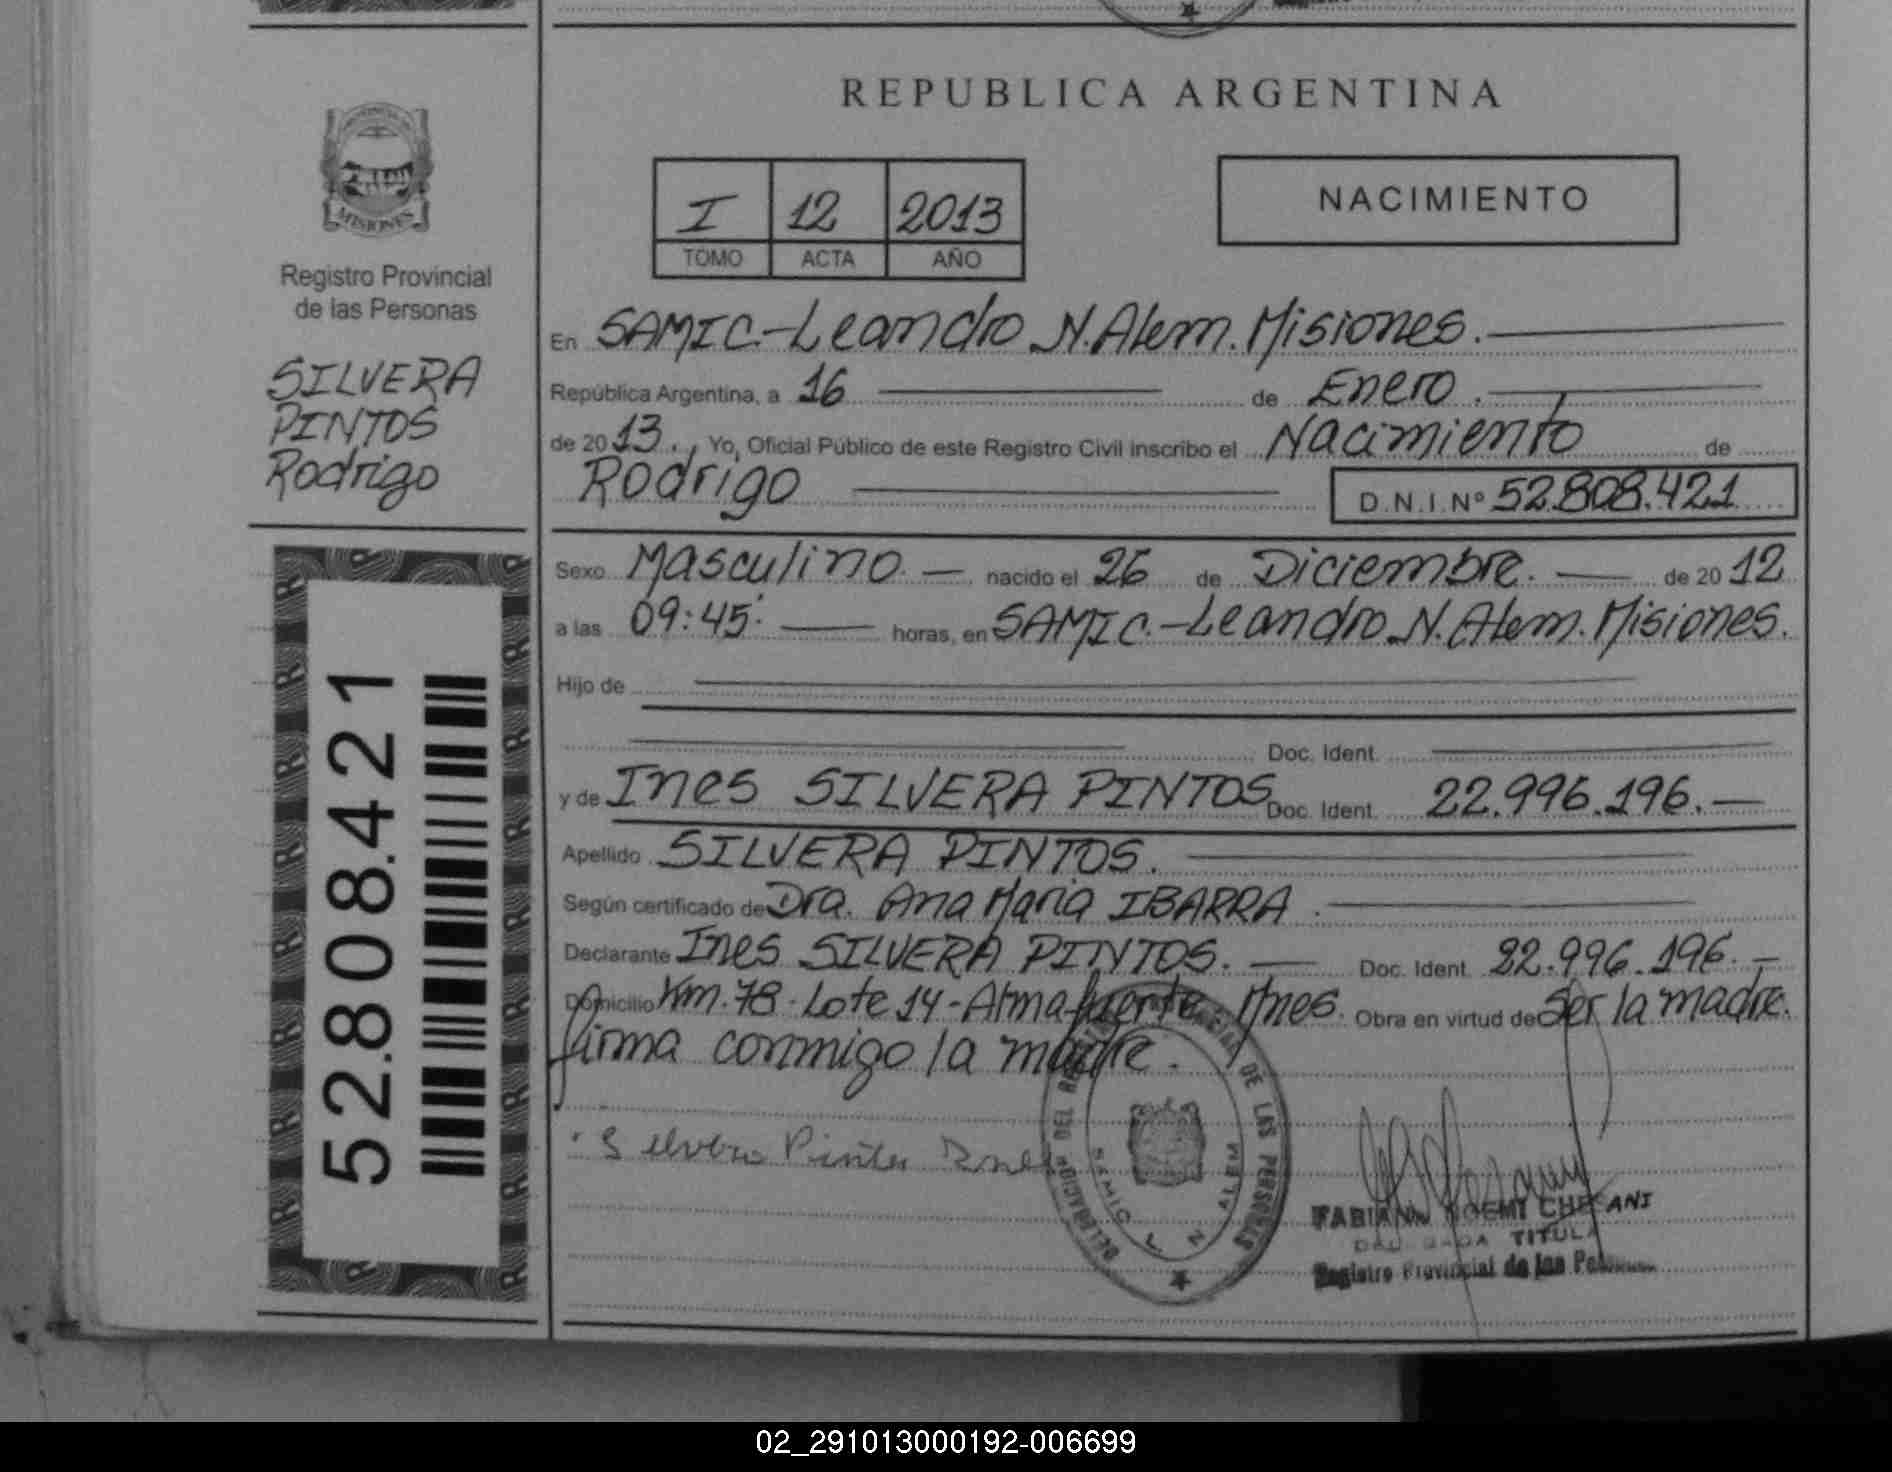 REPUBLICA ARGENTINA
MISIONES
Registro Provincial
de las Personas
SILVERA
PINTOS
Rodrigo
52.808.421
I 12 2013
TOMO ACTA AÑO
NACIMIENTO
En SAMIC.-Leandro N. Alem. Misiones.
República Argentina, a 16 de Enero.
de 2013., Yo, Oficial Público de este Registro Civil inscribo el Nacimiento de
Rodrigo D.N.I. Nº 52.808.421
Sexo Masculino. nacido el 26 de Diciembre. de 2012
a las 09:45. horas, en SAMIC.-Leandro N. Alem. Misiones.
Hijo de
Doc. Ident.
y de Ines SILVERA PINTOS Doc. Ident. 22.996.196.
Apellido SILVERA PINTOS.
Según certificado de Dra. Ana Maria IBARRA.
Declarante Ines SILVERA PINTOS. Doc. Ident. 22.996.196.
Domicilio Km. 78 - Lote 14 - Almafuerte Mnes. Obra en virtud de Ser la madre.
firma conmigo la madre.
Silvera Pintos Ines
DELEGACION DEL DE LAS PERSONAS
SAMIC L N ALEM
FABIANA NOEMI
TITULAR
Registro Provincial de las
02_291013000192-006699